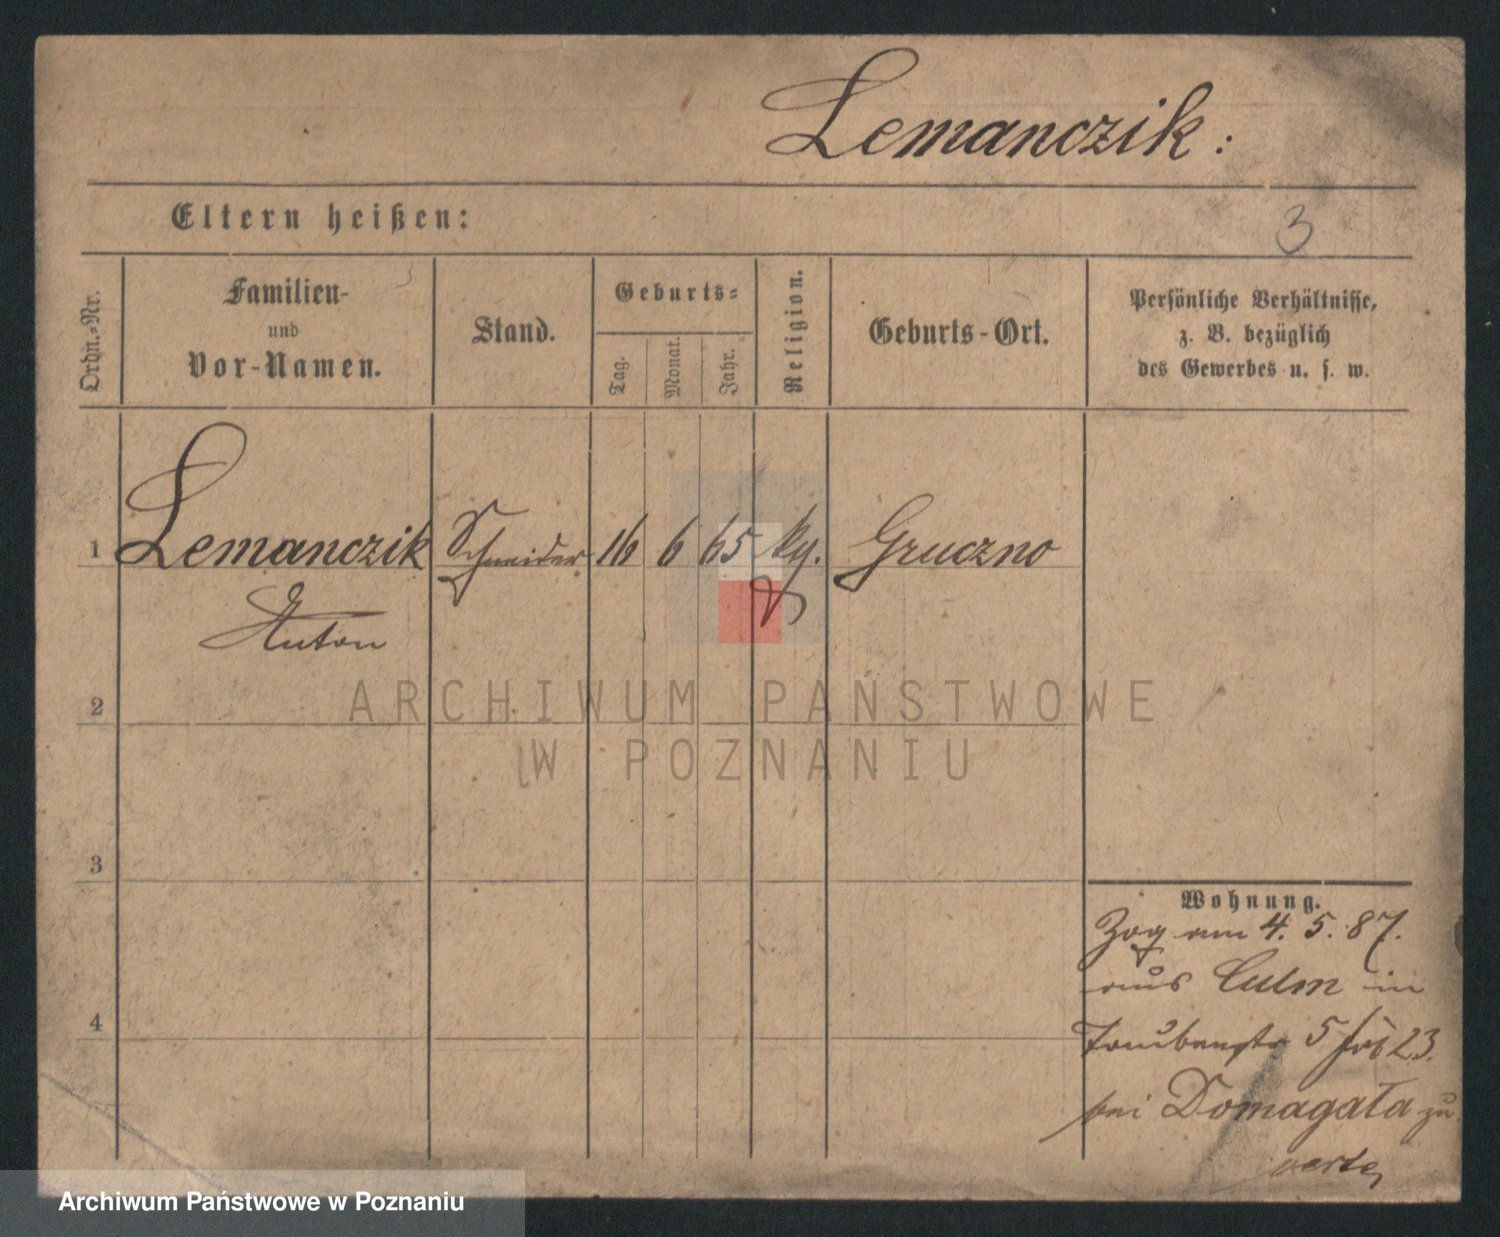 Lemanczik:
Eltern heißen:
3
Ordn.-Nr.
Familien-
und
Vor-Namen.
Stand.
Geburts-
Tag.
Monat.
Jahr.
Religion.
Geburts-Ort.
Persönliche Verhältnisse,
z. B. bezüglich
des Gewerbes u. s. w.
1 Lemanczik Schneider 16 6 65 kg. Gruczno
Anton
2
3
4
Wohnung.
Zog am 4. 5. 87.
aus Culm in
Taubenstr 5
23.
bei Domagała zu
verte,
ARCHIWUM PAŃSTWOWE
W POZNANIU
Archiwum Państwowe w Poznaniu